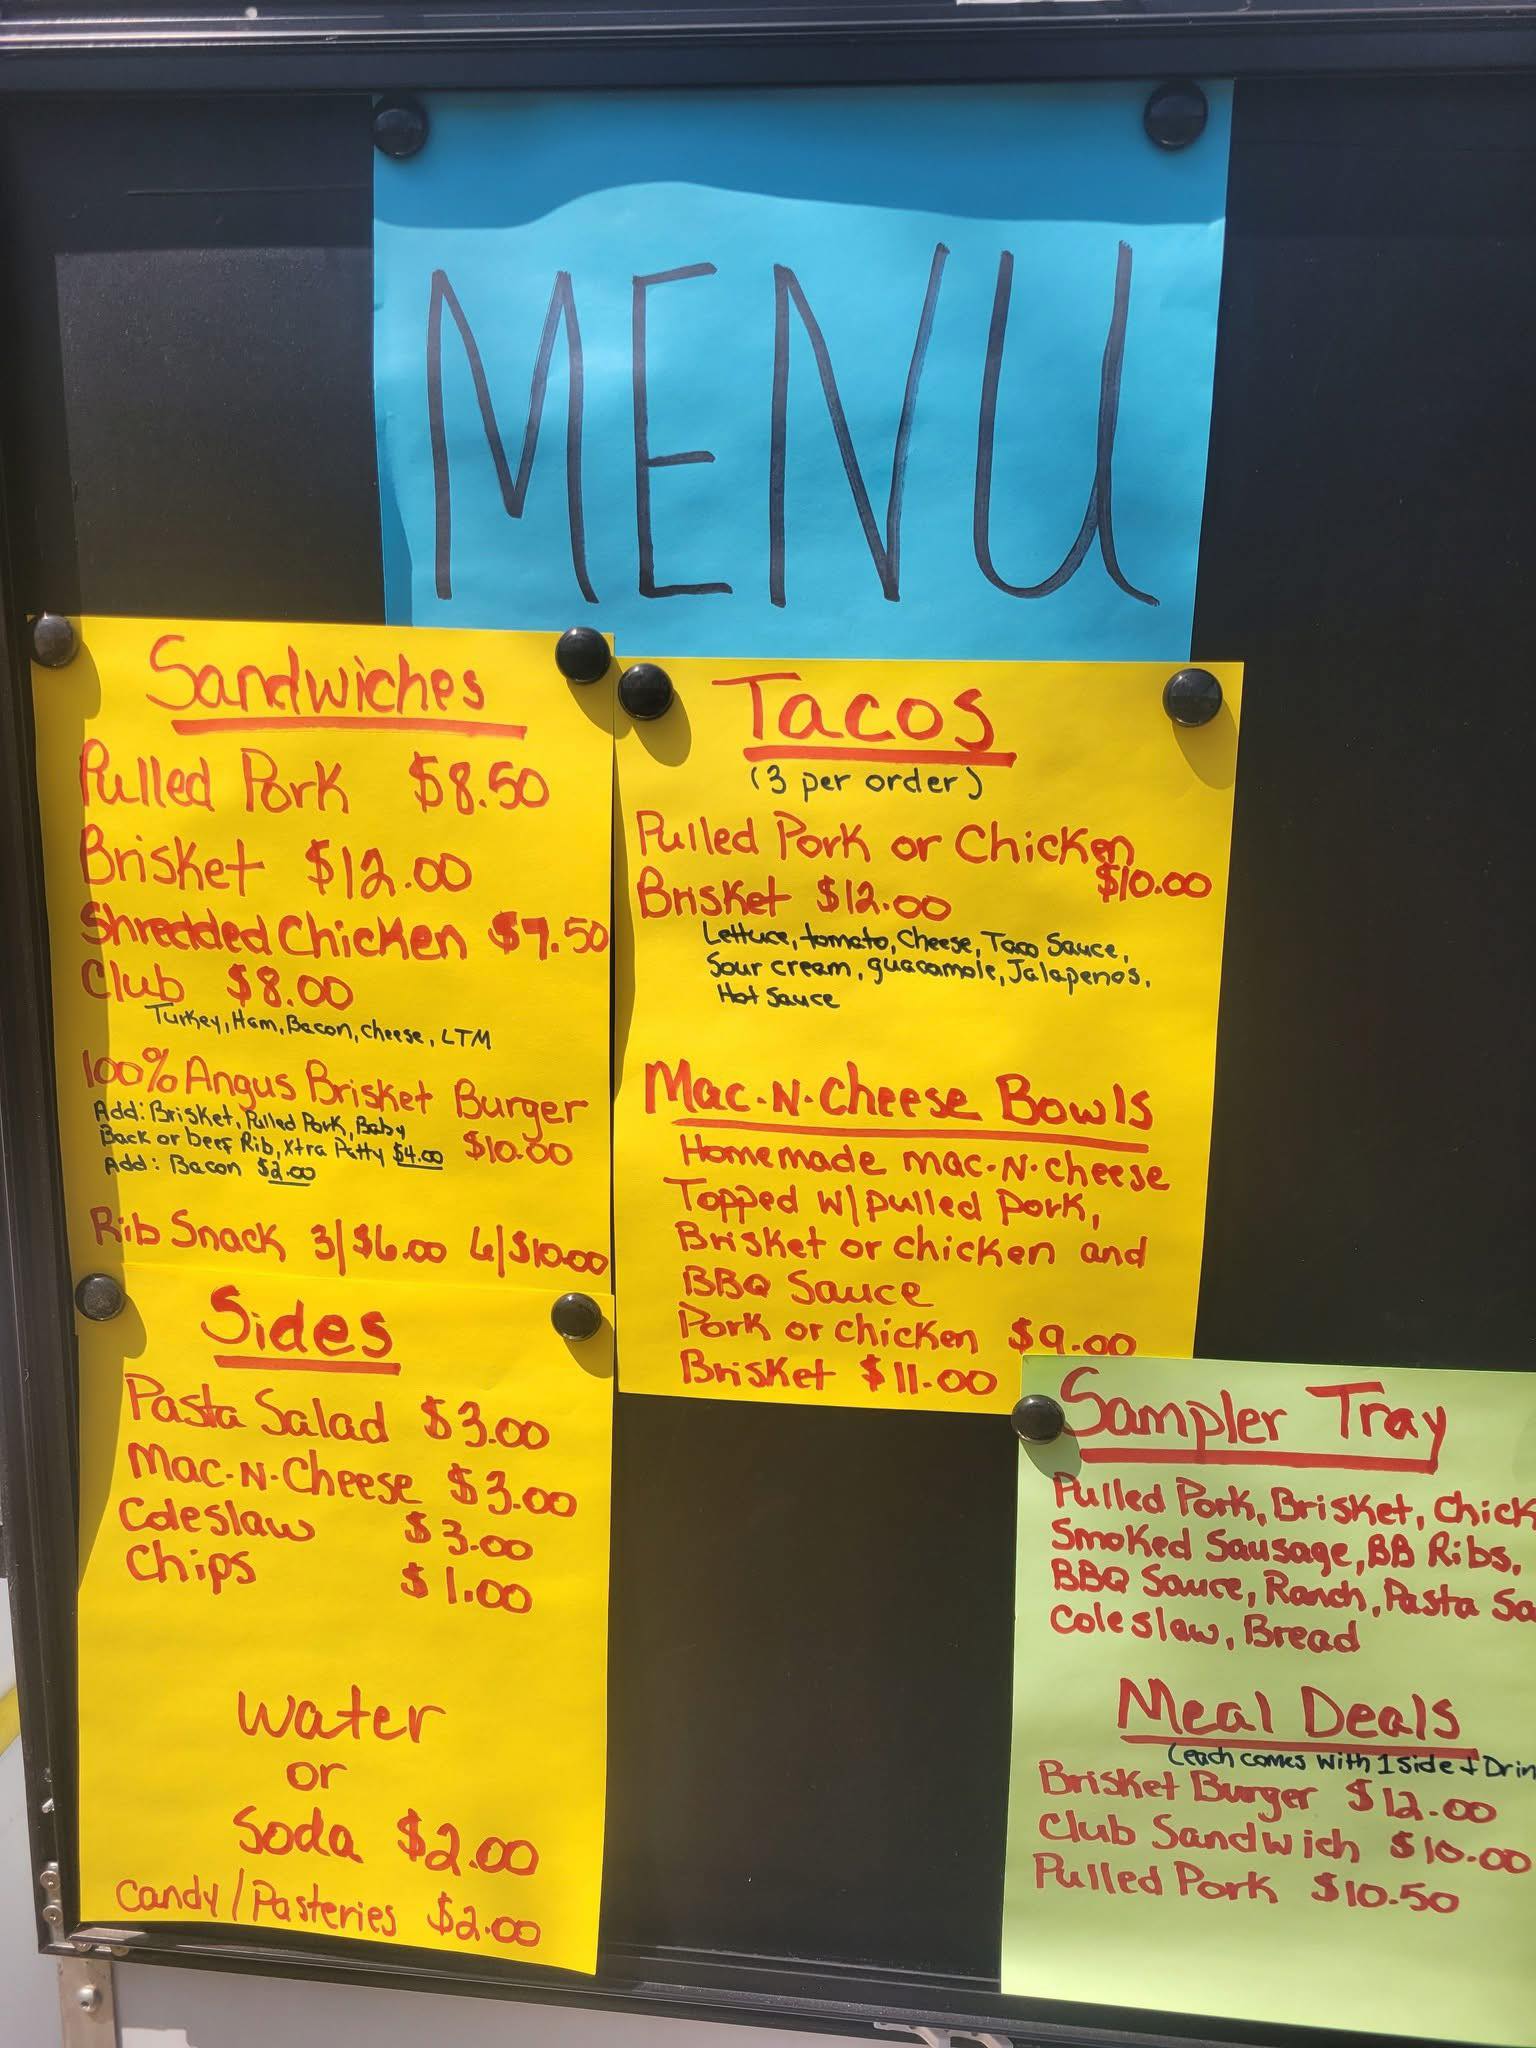 MENU
Sandwiches
Pulled Pork $8.50
Brisket $12.00
Shredded Chicken $7.50
Club $8.00
Turkey, Ham, Bacon, cheese, LTM
100% Angus Brisket Burger
Add: Brisket, Pulled Pork, Baby
Back or beef Rib, Xtra Patty $4.00 $10.00
Add: Bacon $2.00
Rib Snack 3/$6.00 6/$10.00
Sides
Pasta Salad $3.00
Mac-N-Cheese $3.00
Coleslaw $3.00
Chips $1.00
Water
or
Soda $2.00
Candy/Pasteries $2.00
Tacos
(3 per order)
Pulled Pork or Chicken
$10.00
Brisket $12.00
Lettuce, tomato, Cheese, Taco Sauce,
Sour cream, guacamole, Jalapenos,
Hot Sauce
Mac-N-Cheese Bowls
Homemade mac-N-cheese
Topped w/pulled pork,
Brisket or chicken and
BBQ Sauce
Pork or chicken $9.00
Brisket $11.00
Sampler Tray
Pulled Pork, Brisket, Chick
Smoked Sausage, BB Ribs,
BBQ Sauce, Ranch, Pasta Sa
Coleslaw, Bread
Meal Deals
(each comes with 1 side + Drin
Brisket Burger $12.00
Club Sandwich $10.00
Pulled Pork $10.50